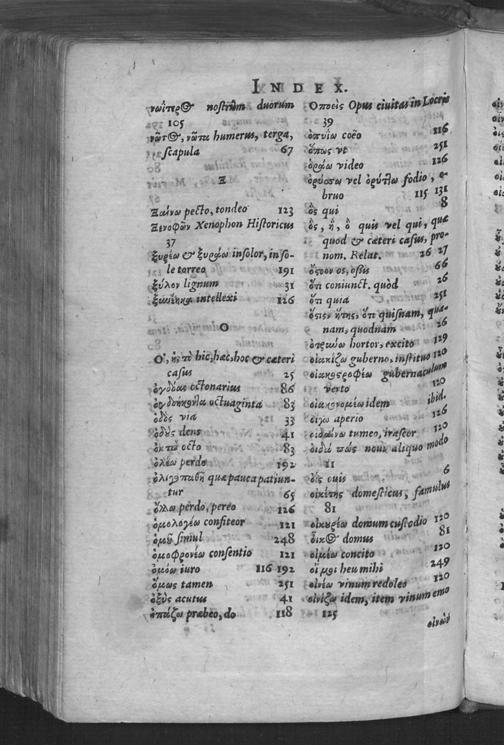 INDEX.
νωΐτερος nostrûm duorum
105
νῶτος, νῶτα humerus, terga,
scapula 67
Ξ
Ξαίνω pecto, tondeo 123
Ξενοφῶν Xenophon Historicus
37
ξυρέω & ξυράω insolor, inso-
le torreo 191
ξύλον lignum 31
intellexi 126
Ο
Ο, ἡ, τὸ hic, hæc, hoc & cæteri
casus 25
ὀγδοὰς octonarius 86
ὀγδοήκοντα octuaginta 83
ὁδὸς via 33
ὀδοὺς dens 41
ὀκτὼ octo 83
ὀλέω perdo 192
quæ pauca patiun-
tur 65
ὄλλω perdo, pereo 126
ὁμολογέω confiteor 121
ὁμοῦ simul 248
ὁμοφρονέω consentio 121
ὀμόω iuro 116 192
ὅμως tamen 251
ὀξὺς acutus 41
ὀπάζω præbeo, do 118
Οποεὶς Opus ciuitas in Locris
39
ὀπυίω coëo 116
ὅπως vt 251
ὁράω video 126
ὀρύσσω vel ὀρύττω fodio, e-
bruo 115 131
ὃς qui 8
ὃς, ἣ, ὃ quis vel qui, quæ
quod & cæteri casus, pro-
nom. Relat. 26 27
ossis 66
ὅτι coniunct. quòd 26
ὅτι quia 251
ὅτι quisnam, quæ-
nam, quodnam 26
hortor, excito 129
οἰακίζω guberno, instituo 120
οἰακοστροφέω gubernaculum
verto 120
οἰακονομέω idem ibid.
οἴγω aperio 126
οἰδαίνω tumeo, irascor 120
noui aliquo modo
11
ὄϊς ouis 6
οἰκέτης domesticus, famulus
81
οἰκουρέω domum custodio 120
οἶκος domus 81
οἰμέω concito 120
οἴ μοι heu mihi 249
οἰνέω vinum redoleo 120
οἰνίζω idem, item vinum emo
125